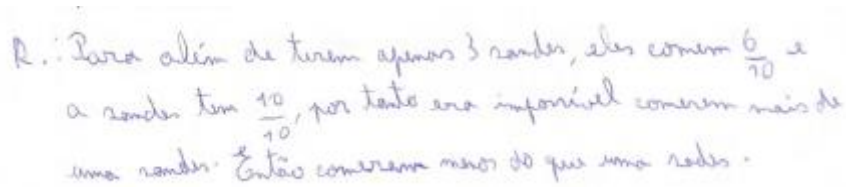 R.: Para além de terem apenas 3 sandes, eles comem 6/10 e
a sandes tem 10/10, por tanto era impossível comerem mais de
uma sandes. Então comeram menos do que uma sades.